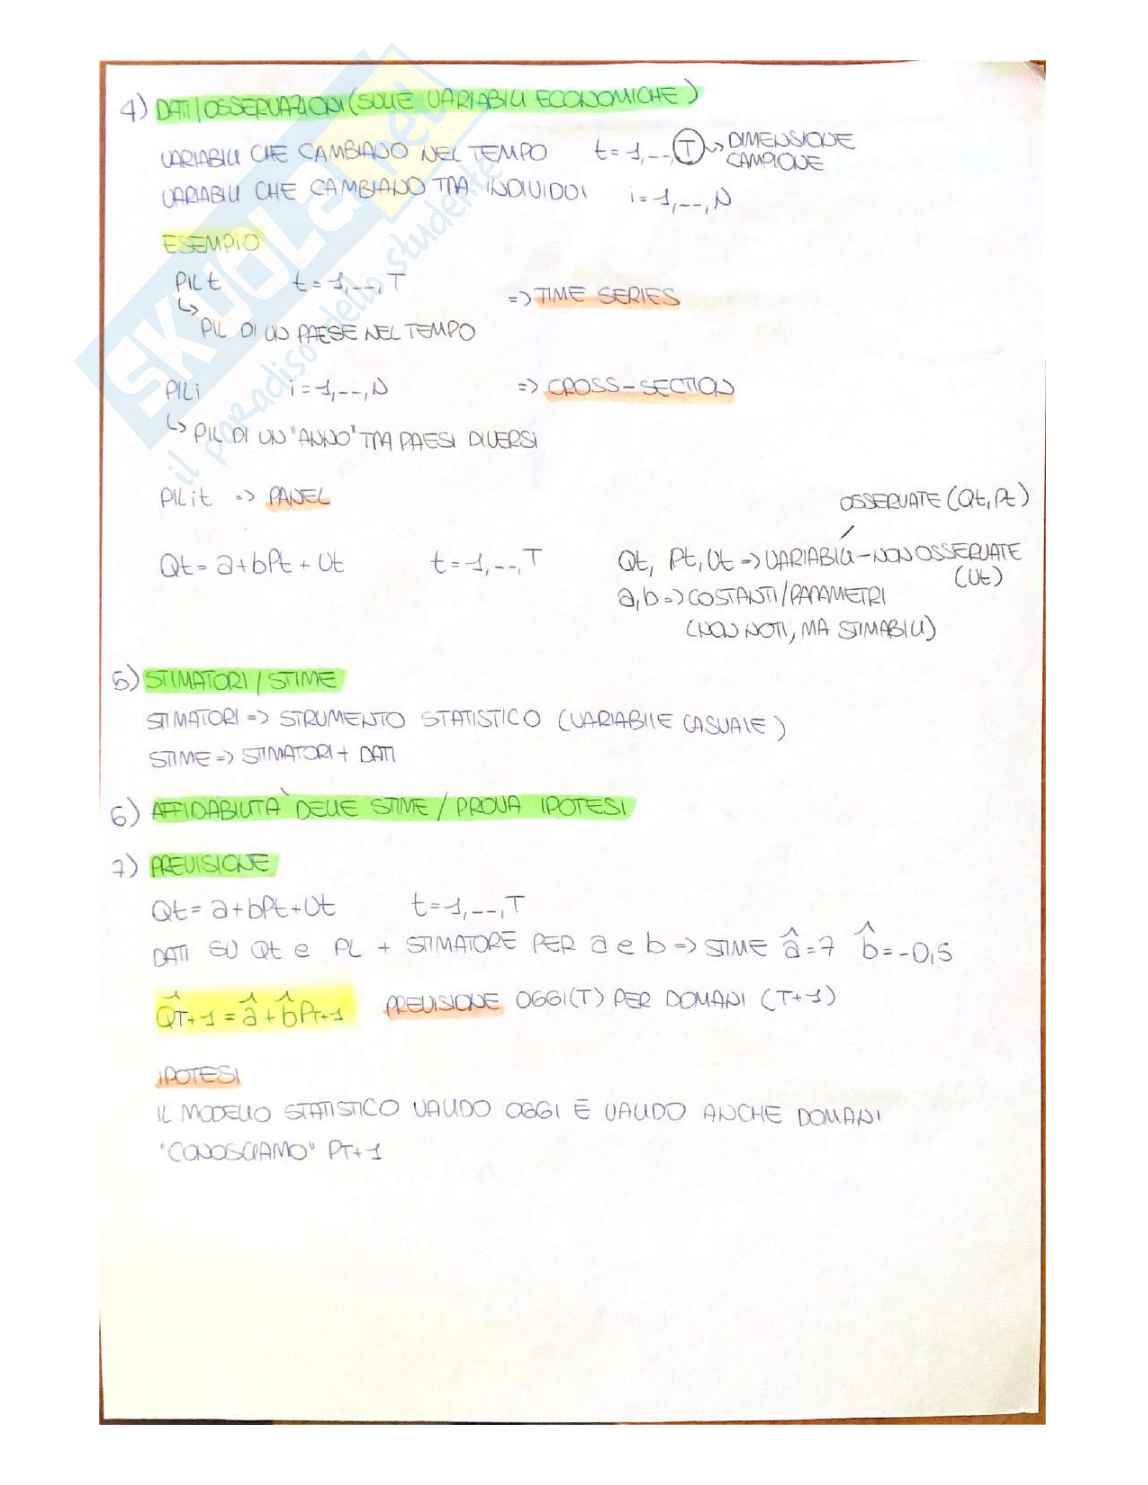 4) DATI/OSSERVAZIONI (SULLE VARIABILI ECONOMICHE)
VARIABILI CHE CAMBIANO NEL TEMPO t=1,--,T ~> DIMENSIONE CAMPIONE
VARIABILI CHE CAMBIANO TRA INDIVIDUI i=1,--,N
ESEMPIO
PILt t=1,--,T => TIME SERIES
↳ PIL DI UN PAESE NEL TEMPO
PILi i=1,--,N => CROSS-SECTION
↳ PIL DI UN "ANNO" TRA PAESI DIVERSI
PILit => PANEL
OSSERVATE (Qt, Pt)
Qt = a+bPt + Ut t=1,--,T Qt, Pt, Ut => VARIABILI - NON OSSERVATE
(Ut)
a,b => COSTANTI/PARAMETRI
(NON NOTI, MA STIMABILI)
5) STIMATORI / STIME
STIMATORI => STRUMENTO STATISTICO (VARIABILE CASUALE)
STIME => STIMATORI + DATI
6) AFFIDABILITA` DELLE STIME / PROVA IPOTESI
7) PREVISIONE
Qt = a+bPt+Ut t=1,--,T
DATI SU Qt e Pt + STIMATORE PER a e b => STIME â=7 b̂=-0,5
Q̂T+1 = â + b̂PT+1 PREVISIONE OGGI(T) PER DOMANI (T+1)
IPOTESI
IL MODELLO STATISTICO VALIDO OGGI È VALIDO ANCHE DOMANI
"CONOSCIAMO" PT+1
SKUOLA.net
il paradiso dello studente